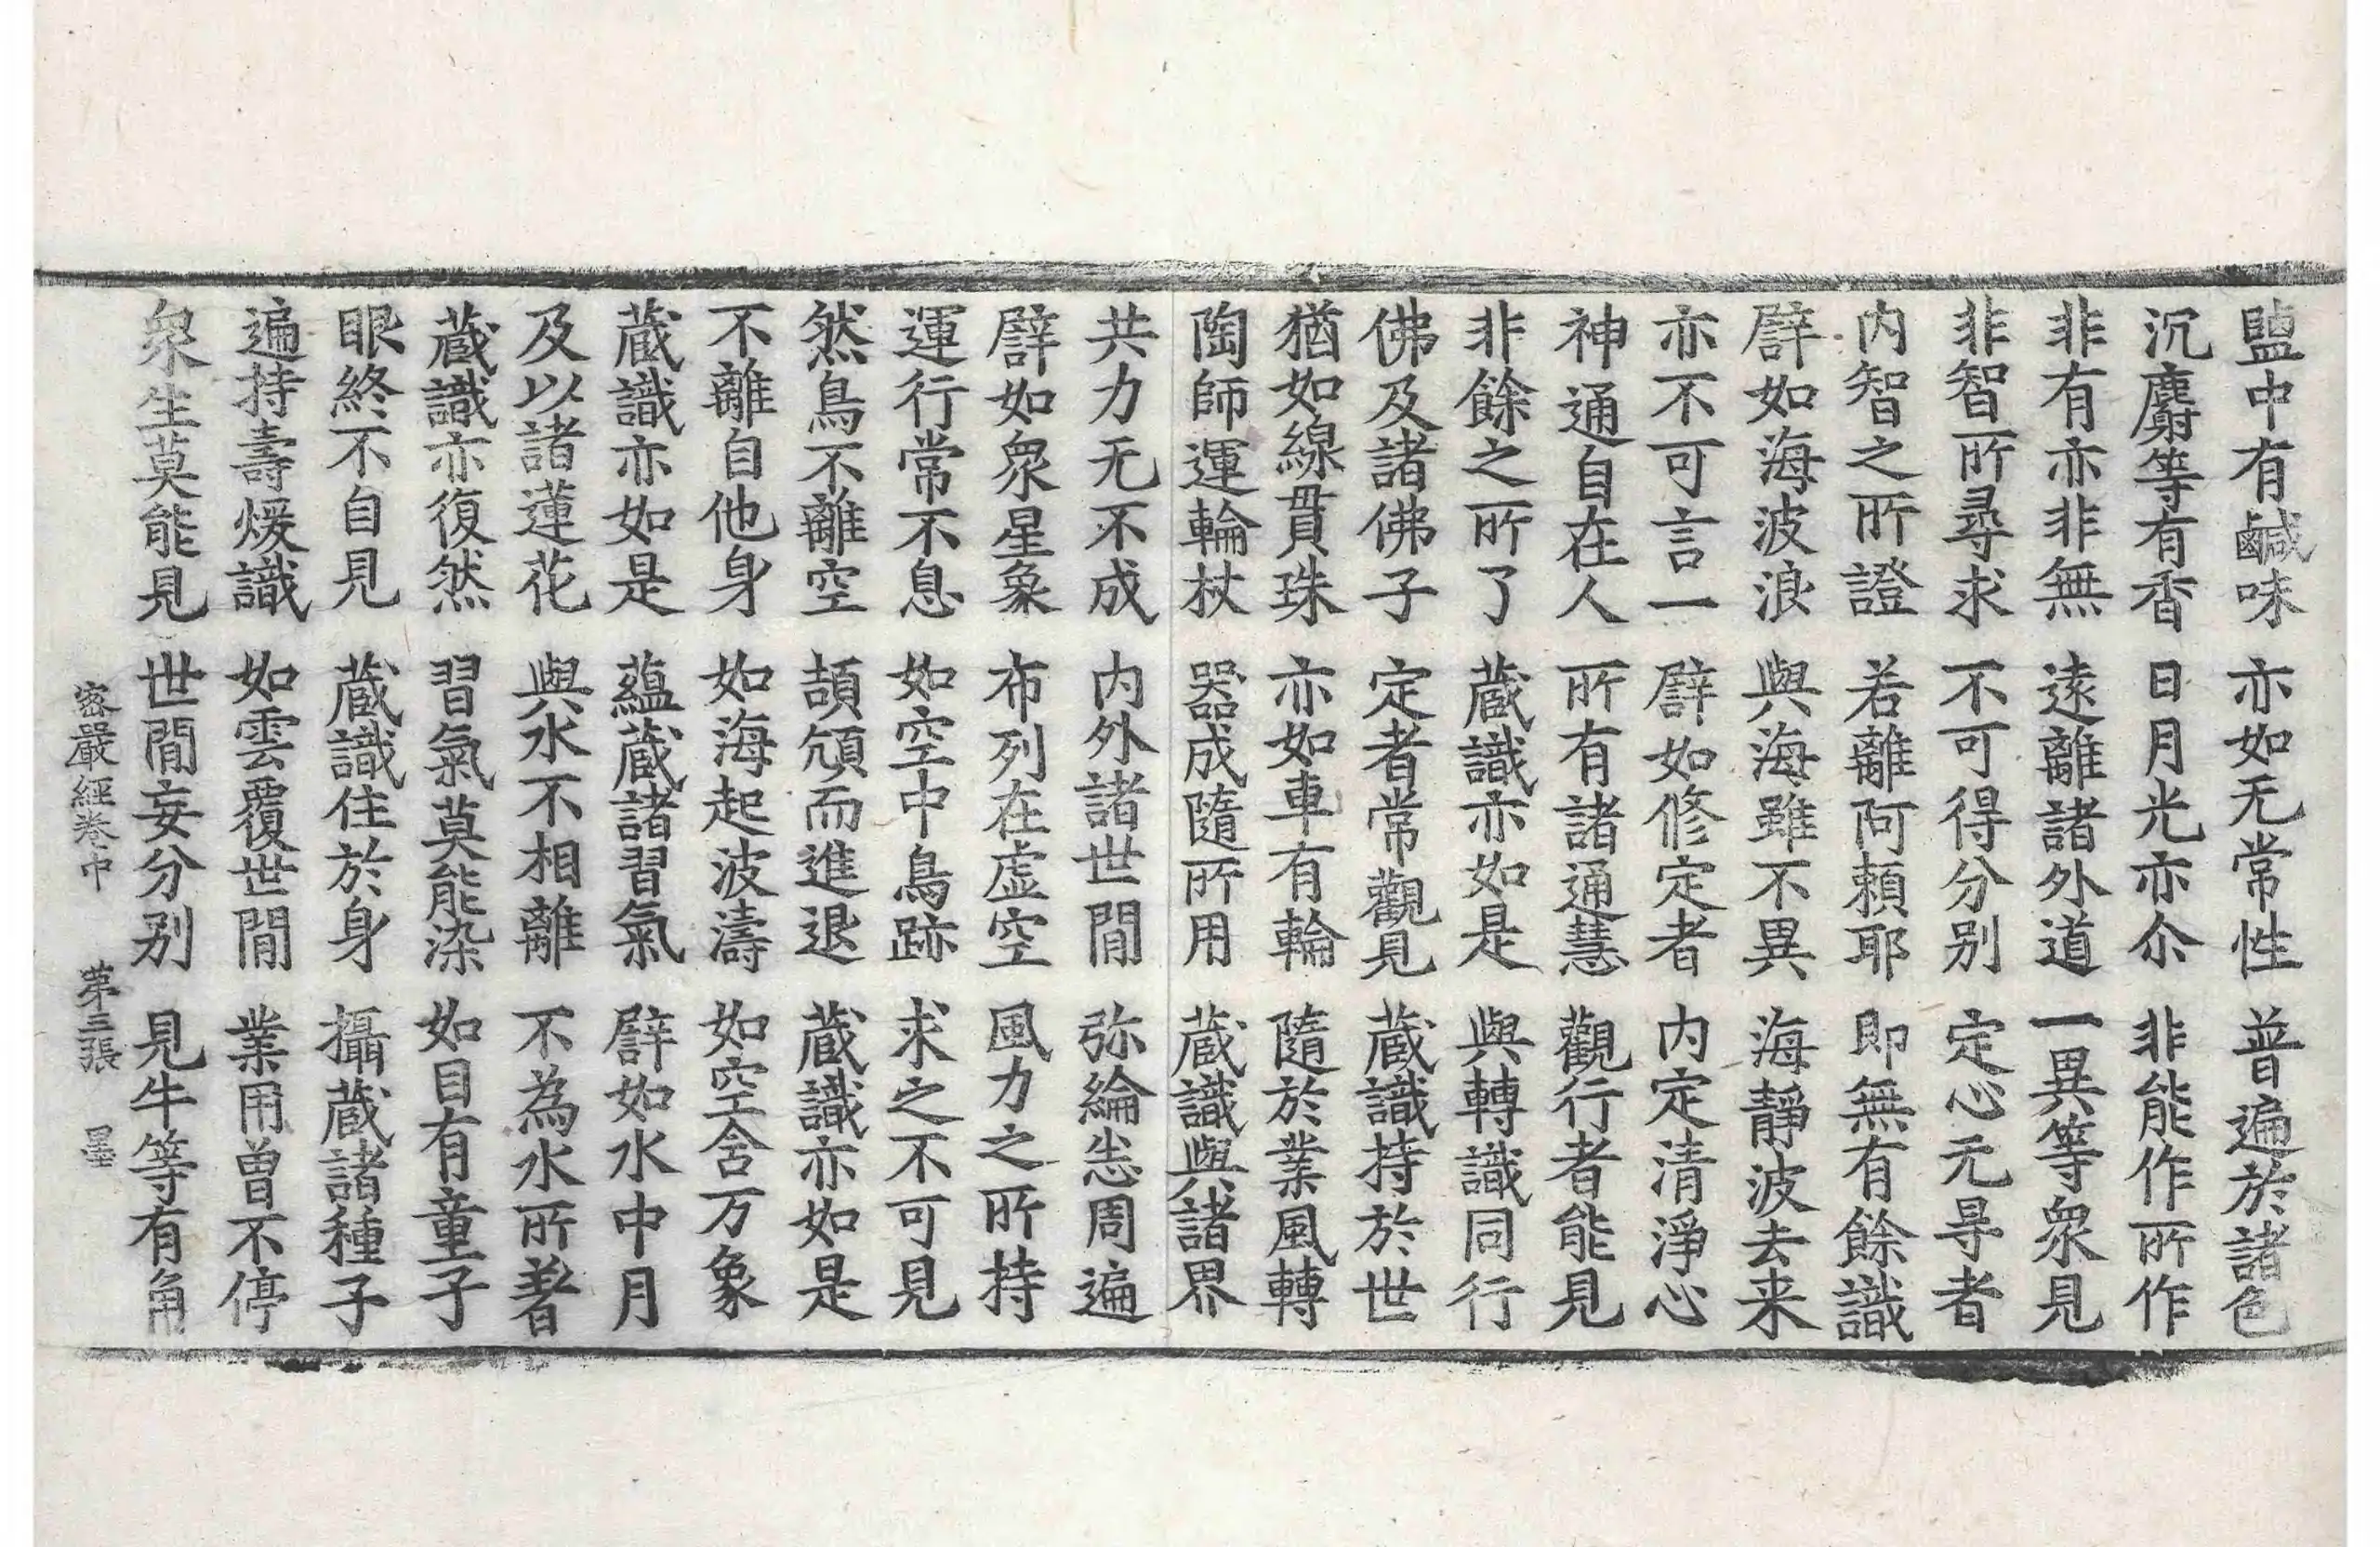 盬中有鹹味 亦如无常性 普遍於諸色
沉麝等有香 日月光亦尒 非能作所作
非有亦非無 遠離諸外道 一異等衆見
非智所尋求 不可得分别 定心无㝷者
内智之所證 若離阿頼耶 即無有餘識
譬如海波浪 與海雖不異 海靜波去来
亦不可言一 譬如修定者 内定清淨心
神通自在人 所有諸通慧 觀行者能見
非餘之所了 蔵識亦如是 與轉識同行
佛及諸佛子 定者常觀見 蔵識持於世
猶如線貫珠 亦如車有輪 隨於業風轉
陶師運輪杖 器成隨所用 蔵識與諸界
共力无不成 内外諸世間 弥綸悉周遍
譬如衆星象 布列在虚空 風力之所持
運行常不息 如空中鳥跡 求之不可見
然鳥不離空 頡頏而進退 蔵識亦如是
不離自他身 如海起波濤 如空含万象
蔵識亦如是 蘊蔵諸習氣 譬如水中月
及以諸蓮花 與水不相離 不為水所著
蔵識亦復然 習氣莫能染 如目有童子
眼終不自見 蔵識住於身 攝蔵諸種子
遍持壽煖識 如雲覆世間 業用曾不停
衆生莫能見 世間妄分别 見牛等有角
密嚴經卷中 第三張 墨